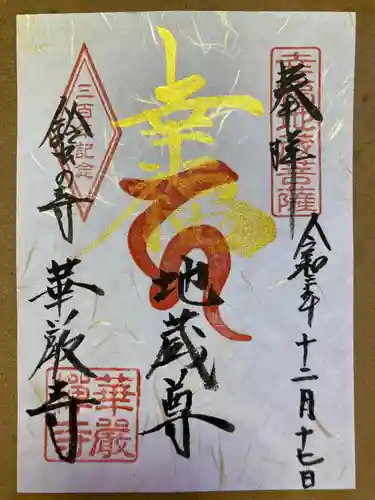 奉拝
幸福地蔵菩薩
令和五年十二月十七日
幸
地蔵尊
三百年記念
鈴虫の寺
華厳寺
華嚴禪寺